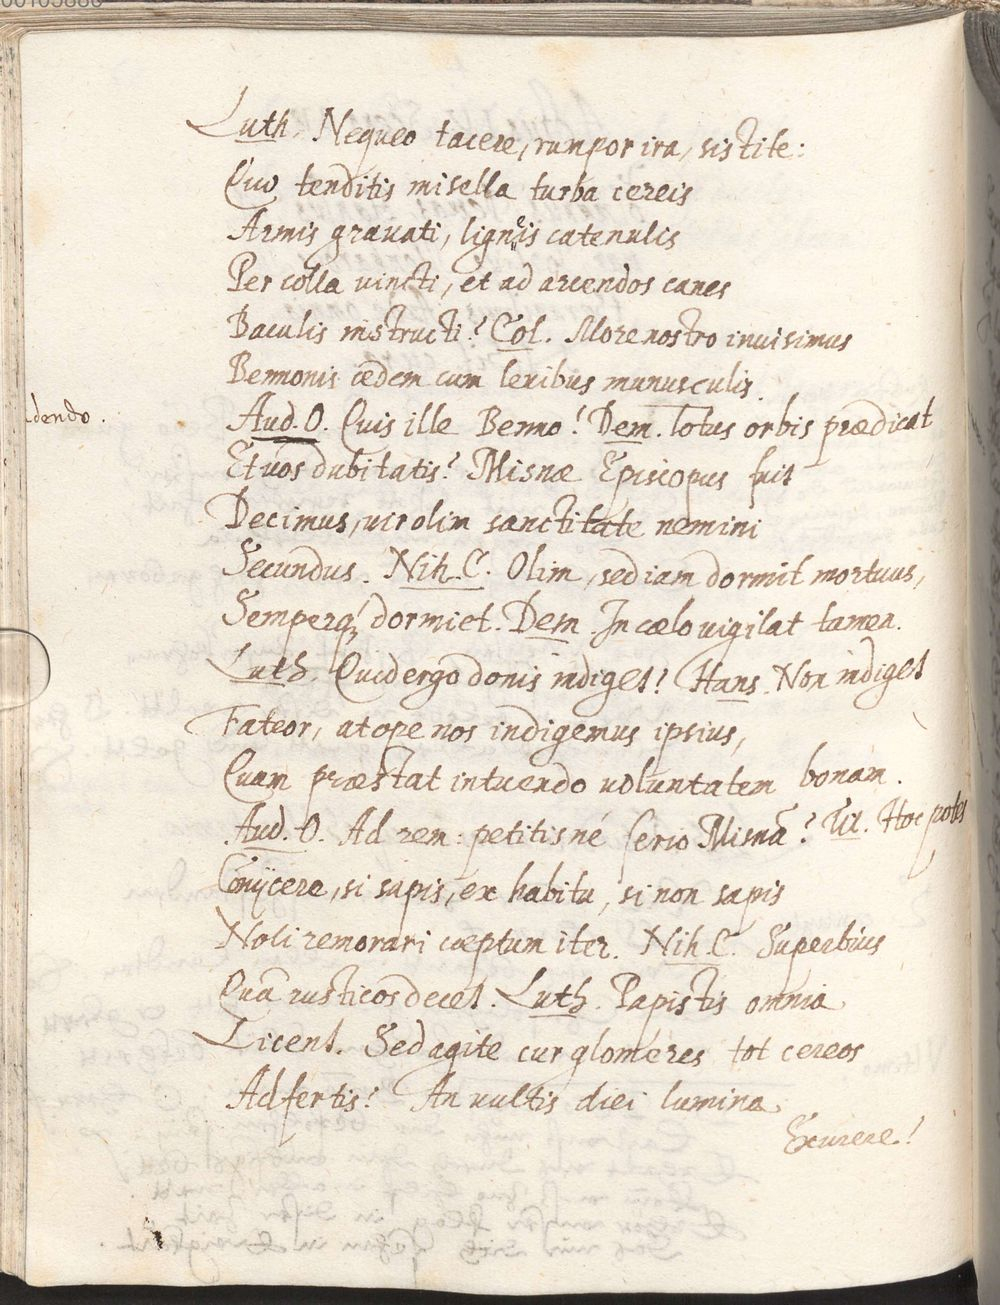 Luth. Nequeo tacere, rumpor ira, sistite:
Quo tenditis misella turba cereis
Armis gravati, ligneis catenulis
Per colla vincti, et ad arcendos canes
Baculis instructi? Col. More nostro invisimus
Bennonis ædem cum levibus munusculis.
dendo.
Aud. O. Quis ille Benno? Dem. Totus orbis prædicat
Et vos dubitatis? Misnæ Episcopus fuit
Decimus, vir olim sanctitate nemini
Secundus. Nih. C. Olim, sed iam dormit mortuus,
Semperq́ dormiet. Dem. In cælo vigilat tamen.
Luth. Quid ergo donis indiget? Hans. Non indiget
Fateor, at ope nos indigemus ipsius,
Quam præstat intuendo voluntatem bonam.
Aud. O. Ad rem: petitisné serio Misnā? Hoc potes
Conijcere, si sapis, ex habitu, si non sapis
Noli remorari cœptum iter. Nih. C. Superbius
Quā rusticos decet. Luth. Papistis omnia
Licent. Sed agite cur glomeres tot cereos
Adfertis? An vultis diei lumina
Exurere?